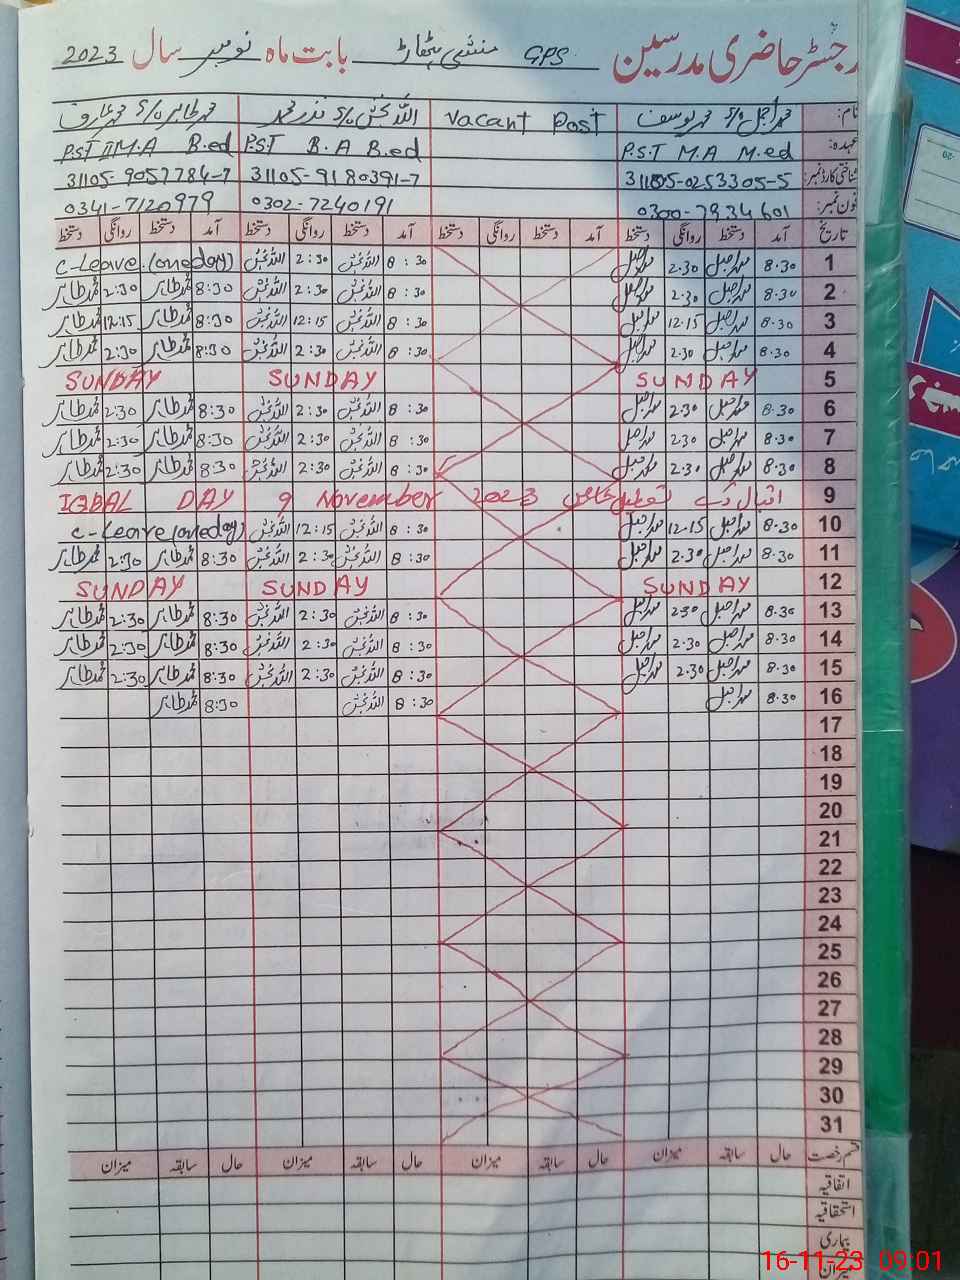 رجسٹر حاضری مدرسین GPS منشی بابت ماہ نومبر سال 2023
نام: محمد اجمل s/o محمد یوسف Vacant Post اللہ بخش s/o نذر محمد محمد طاہر s/o محمد عارف
عہدہ: P.S.T M.A M.ed P.S.T B.A B.ed P.S.T II M.A B.ed
شناختی کارڈ نمبر: 31105-0253305-5 31105-9180391-7 31105-9057784-7
فون نمبر: 0300-7934601 0302-7240191 0341-7120979
تاریخ آمد دستخط روانگی دستخط آمد دستخط روانگی دستخط آمد دستخط روانگی دستخط آمد دستخط روانگی دستخط
1 8.30 محمد اجمل 2.30 محمد اجمل 8:30 اللہ بخش 2:30 اللہ بخش C-Leave (one day)
2 8.30 محمد اجمل 2.30 محمد اجمل 8:30 اللہ بخش 2:30 اللہ بخش 8:30 محمد طاہر 2:30 محمد طاہر
3 8.30 محمد اجمل 12.15 محمد اجمل 8:30 اللہ بخش 12:15 اللہ بخش 8:30 محمد طاہر 12:15 محمد طاہر
4 8.30 محمد اجمل 2.30 محمد اجمل 8:30 اللہ بخش 2:30 اللہ بخش 8:30 محمد طاہر 2:30 محمد طاہر
5 SUNDAY SUNDAY SUNDAY
6 8.30 محمد اجمل 2.30 محمد اجمل 8:30 اللہ بخش 2:30 اللہ بخش 8:30 محمد طاہر 2:30 محمد طاہر
7 8.30 محمد اجمل 2.30 محمد اجمل 8:30 اللہ بخش 2:30 اللہ بخش 8:30 محمد طاہر 2:30 محمد طاہر
8 8.30 محمد اجمل 2.30 محمد اجمل 8:30 اللہ بخش 2:30 اللہ بخش 8:30 محمد طاہر 2:30 محمد طاہر
9 اقبال ڈے تعطیل خاص IQBAL DAY 9 November 2023
10 8.30 محمد اجمل 12.15 محمد اجمل 8:30 اللہ بخش 12:15 اللہ بخش C-Leave (one day)
11 8.30 محمد اجمل 2.30 محمد اجمل 8:30 اللہ بخش 2:30 اللہ بخش 8:30 محمد طاہر 2:30 محمد طاہر
12 SUNDAY SUNDAY SUNDAY
13 8.30 محمد اجمل 2.30 محمد اجمل 8:30 اللہ بخش 2:30 اللہ بخش 8:30 محمد طاہر 2:30 محمد طاہر
14 8.30 محمد اجمل 2.30 محمد اجمل 8:30 اللہ بخش 2:30 اللہ بخش 8:30 محمد طاہر 2:30 محمد طاہر
15 8.30 محمد اجمل 2.30 محمد اجمل 8:30 اللہ بخش 2:30 اللہ بخش 8:30 محمد طاہر 2:30 محمد طاہر
16 8.30 محمد اجمل 8:30 اللہ بخش 8:30 محمد طاہر
17
18
19
20
21
22
23
24
25
26
27
28
29
30
31
قسم رخصت حال سابقہ میزان حال سابقہ میزان حال سابقہ میزان حال سابقہ میزان
اتفاقیہ
استحقاقیہ
بیماری
میزان
16-11-23 09:01